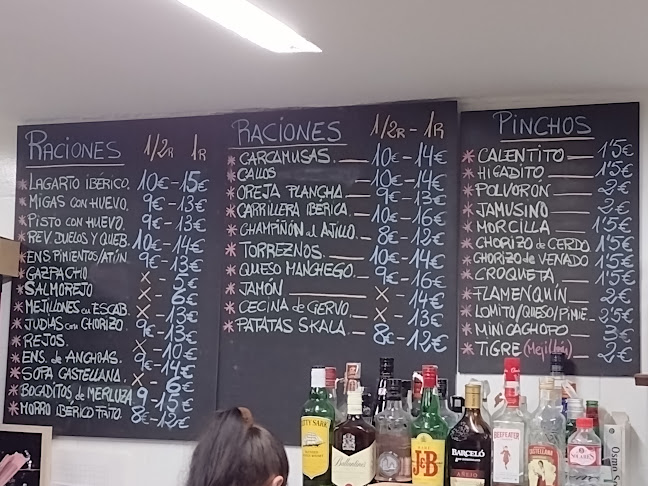 RACIONES 1/2R 1R
* LAGARTO IBÉRICO. 10€-15€
* MIGAS CON HUEVO. 9€-13€
* PISTO CON HUEVO. 9€-13€
* REV. DUELOS Y QUEB. 10€-14€
* ENS. PIMIENTOS/ATÚN. 9€-13€
* GAZPACHO X-5€
* SALMOREJO X-6€
* MEJILLONES en ESCAB. X-13€
* JUDÍAS con CHORIZO 9€-13€
* REJOS. X-10€
* ENS. de ANCHOAS. 9€-14€
* SOPA CASTELLANA. X-6€
* BOCADITOS de MERLUZA 9-15€
* MORRO IBÉRICO FRITO. 8€-12€
RACIONES 1/2R - 1R
* CARCAMUSAS. 10€-14€
* CALLOS 10€-14€
* OREJA PLANCHA. 9€-13€
* CARRILLERA IBÉRICA. 10€-16€
* CHAMPIÑÓN al AJILLO. 8€-12€
* TORREZNOS. 10€-14€
* QUESO MANCHEGO. 9€-16€
* JAMÓN X-14€
* CECINA de CERVO. X-13€
* PATATAS SKALA. 8€-12€
PINCHOS
* CALENTITO 1'5€
* HIGADITO 1'5€
* POLVORON 2€
* JAMUSINO 2€
* MORCILLA 1'5€
* CHORIZO de CERDO 1'5€
* CHORIZO de VENADO 1'5€
* CROQUETA 1'5€
* FLAMENQUÍN 2€
* LOMITO/QUESO/PIMIE. 2'5€
* MINICACHOPO 3€
* TIGRE (Mejillón) 2€
CUTTY SARK
Ballantine's
J&B
BARCELÓ
AÑEJO
BEEFEATER
CASTELLANA
Osmo